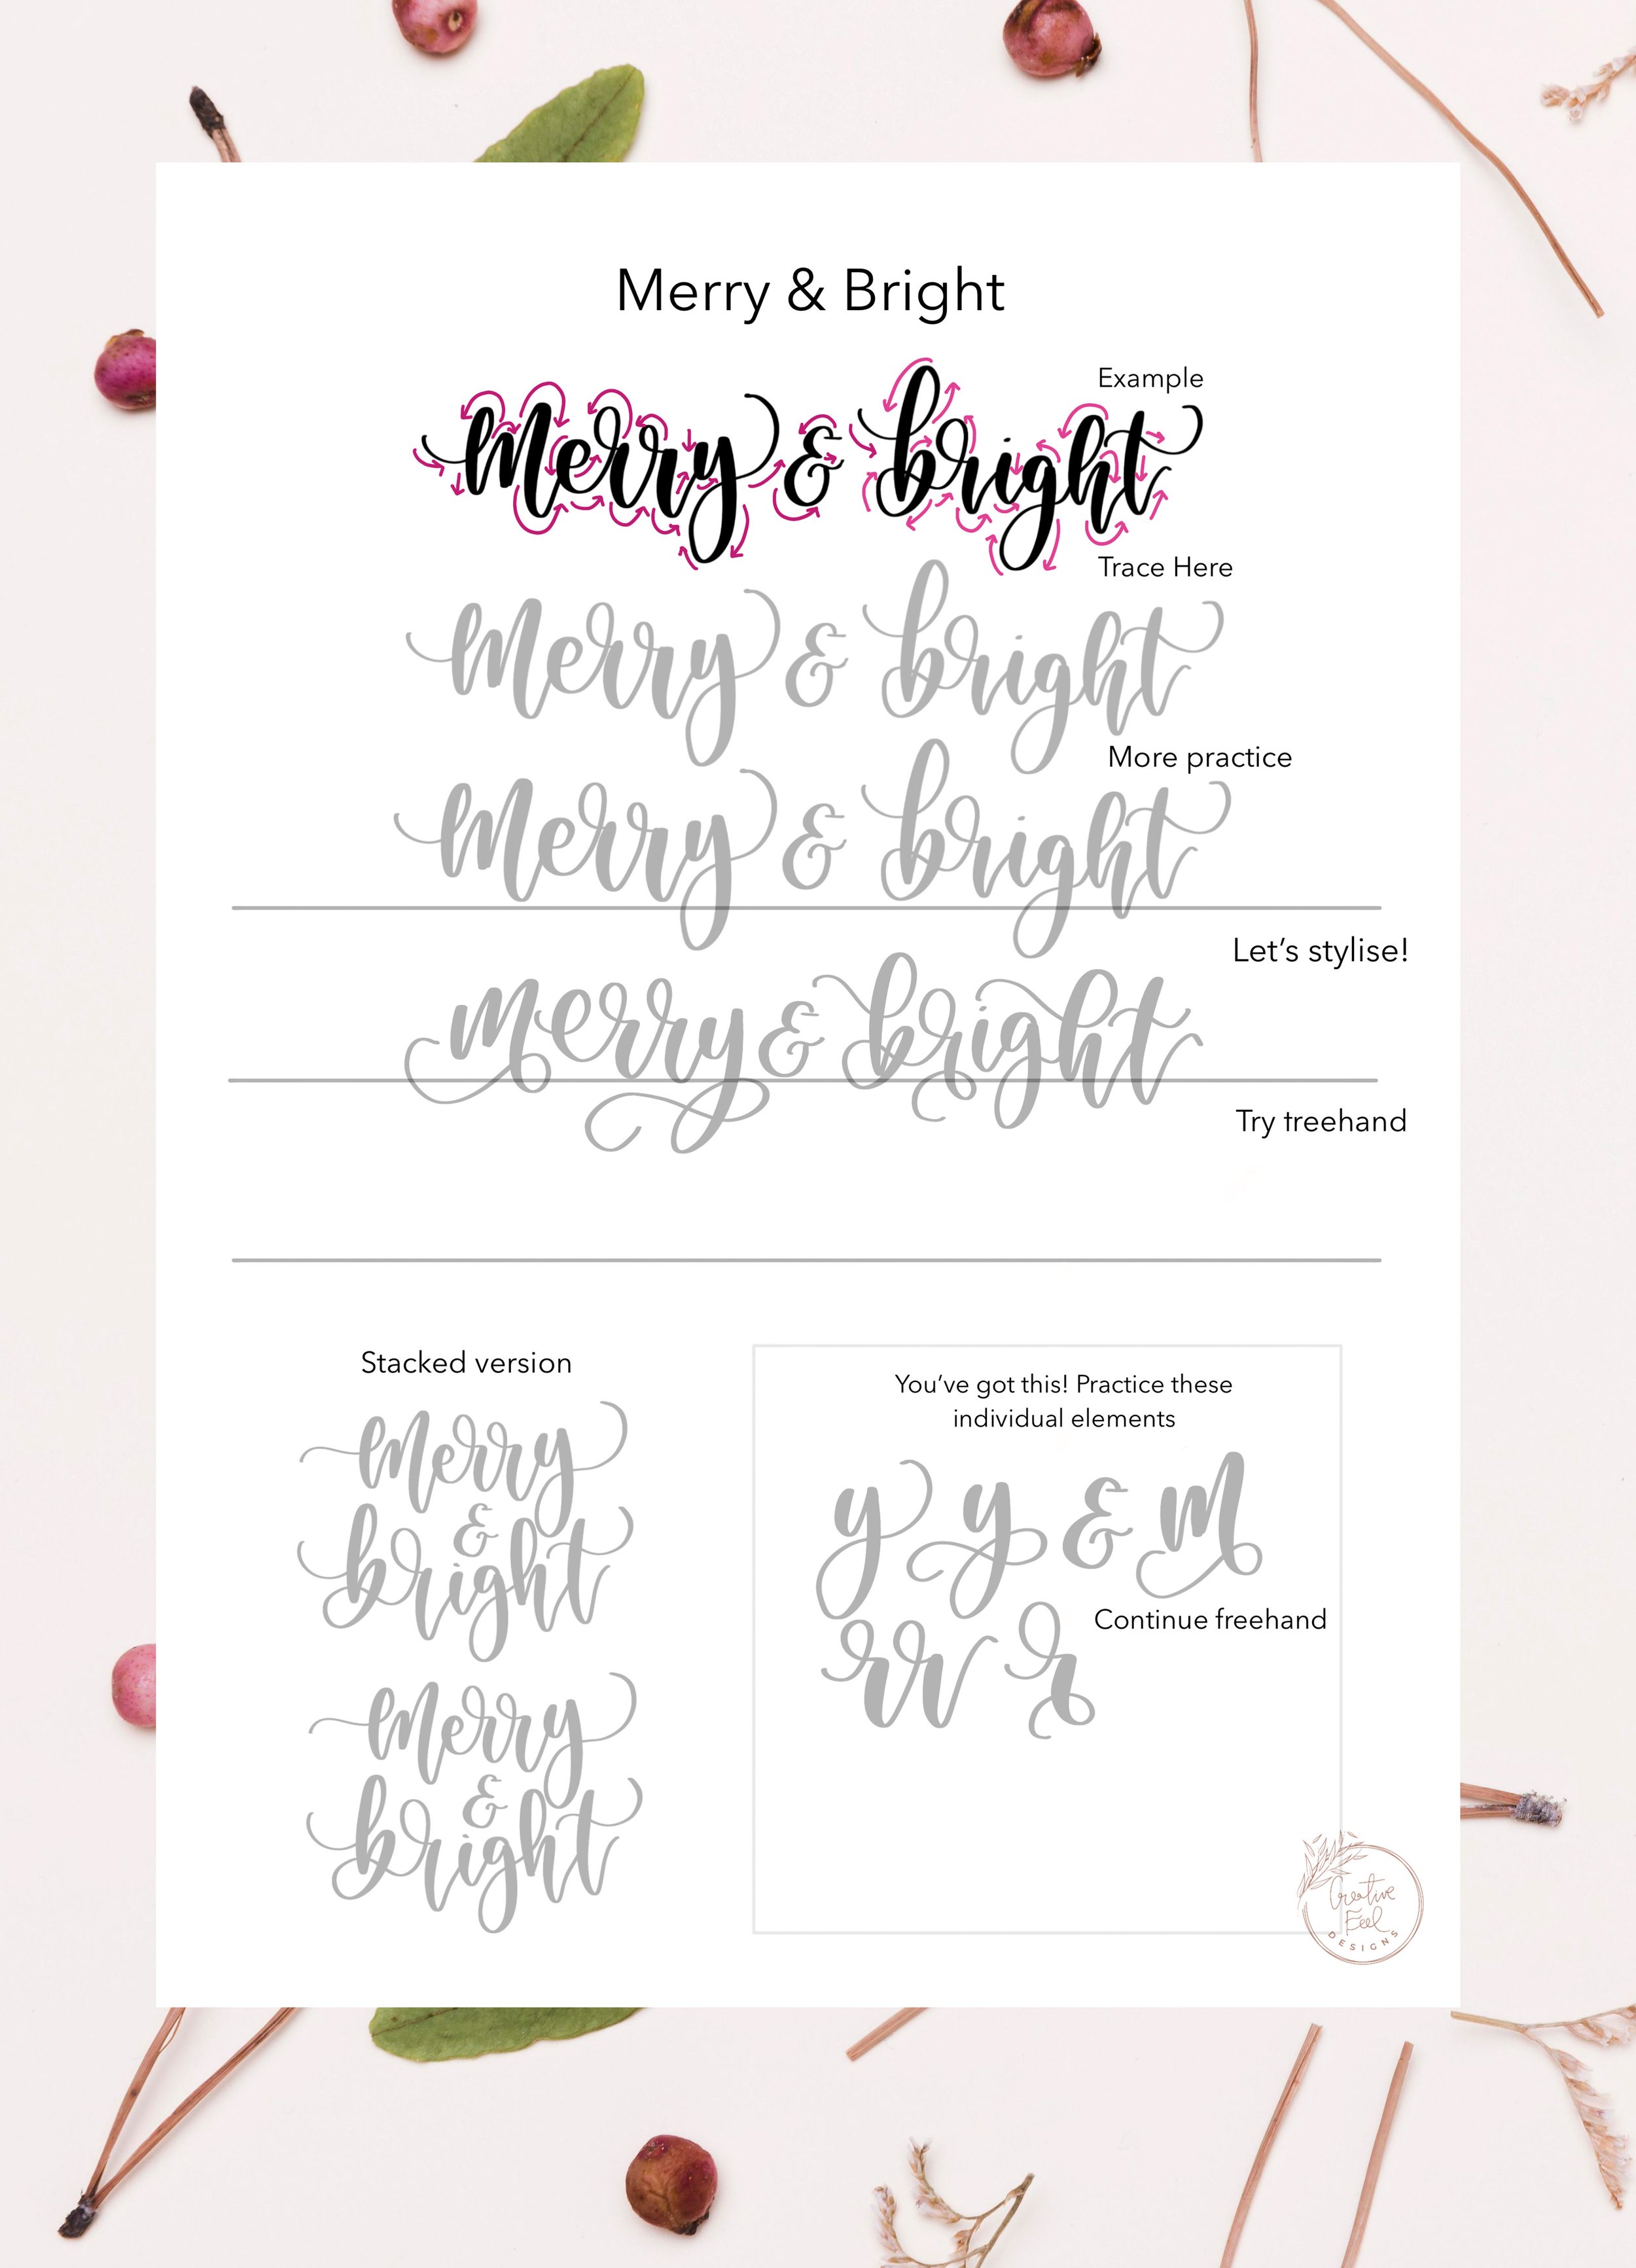 Merry & Bright
Example
merry & bright
Trace Here
merry & bright
More practice
merry & bright
Let's stylise!
merry & bright
Try treehand
Stacked version
merry
&
bright
merry
&
bright
You've got this! Practice these
individual elements
y y & m
Continue freehand
rr r
Creative
Feel
DESIGNS